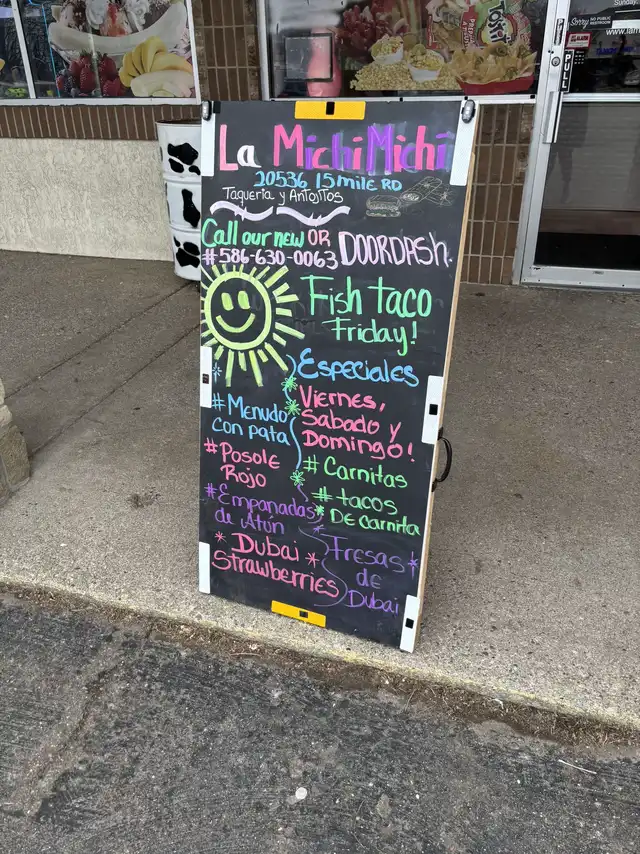 La MichiMichi
20536 15 mile RD
Taqueria y Antojitos
Call our new OR DOORDASH.
#586-630-0063
Fish taco
Friday!
Especiales
Viernes,
Sabado y
Domingo!
# Menudo
con pata
# Posole
Rojo
# Empanadas
de Atún
# Carnitas
# tacos
De carnita
* Dubai *
Strawberries
Fresas *
de
Dubai
Sunday:
Sorry NO PUBLIC RESTROOM
PULL
Tosti